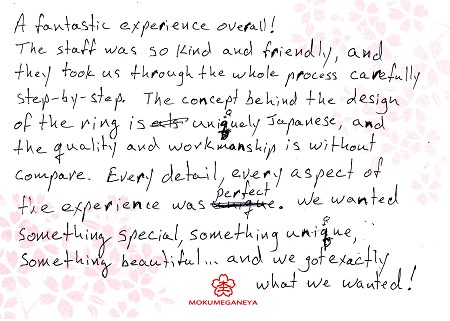 A fantastic experience overall!
The staff was so kind and friendly, and
they took us through the whole process carefully
step-by-step. The concept behind the design
of the ring is uniquely Japanese, and
the quality and workmanship is without
compare. Every detail, every aspect of
the experience was perfect. We wanted
something special, something unique,
something beautiful... and we got exactly
what we wanted!
MOKUMEGANEYA